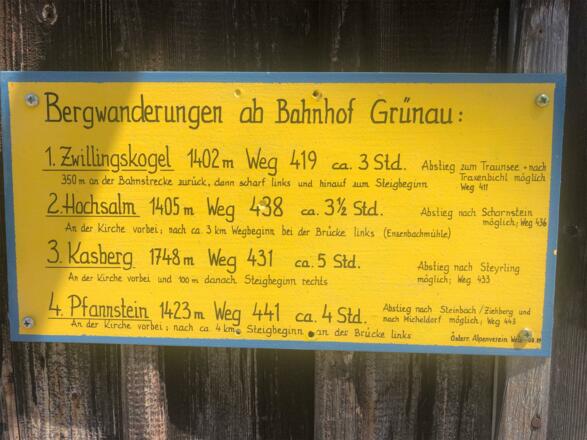 Bergwanderungen ab Bahnhof Grünau:
1. Zwillingskogel 1402 m Weg 419 ca. 3 Std.
Abstieg zum Traunsee + nach
Traxenbichl möglich
Weg 411
350 m an der Bahnstrecke zurück, dann scharf links und hinauf zum Steigbeginn
2. Hochsalm 1405 m Weg 438 ca. 3½ Std.
Abstieg nach Scharnstein
möglich; Weg 436
An der Kirche vorbei; nach ca. 3 km Wegbeginn bei der Brücke links (Enzenbachmühle)
3. Kasberg 1748 m Weg 431 ca. 5 Std.
Abstieg nach Steyrling
möglich; Weg 433
An der Kirche vorbei und 100 m danach Steigbeginn rechts
4. Pfannstein 1423 m Weg 441 ca. 4 Std.
Abstieg nach Steinbach / Ziehberg und
nach Micheldorf möglich; Weg 443
An der Kirche vorbei; nach ca. 4 km Steigbeginn an der Brücke links
Österr. Alpenverein Wels